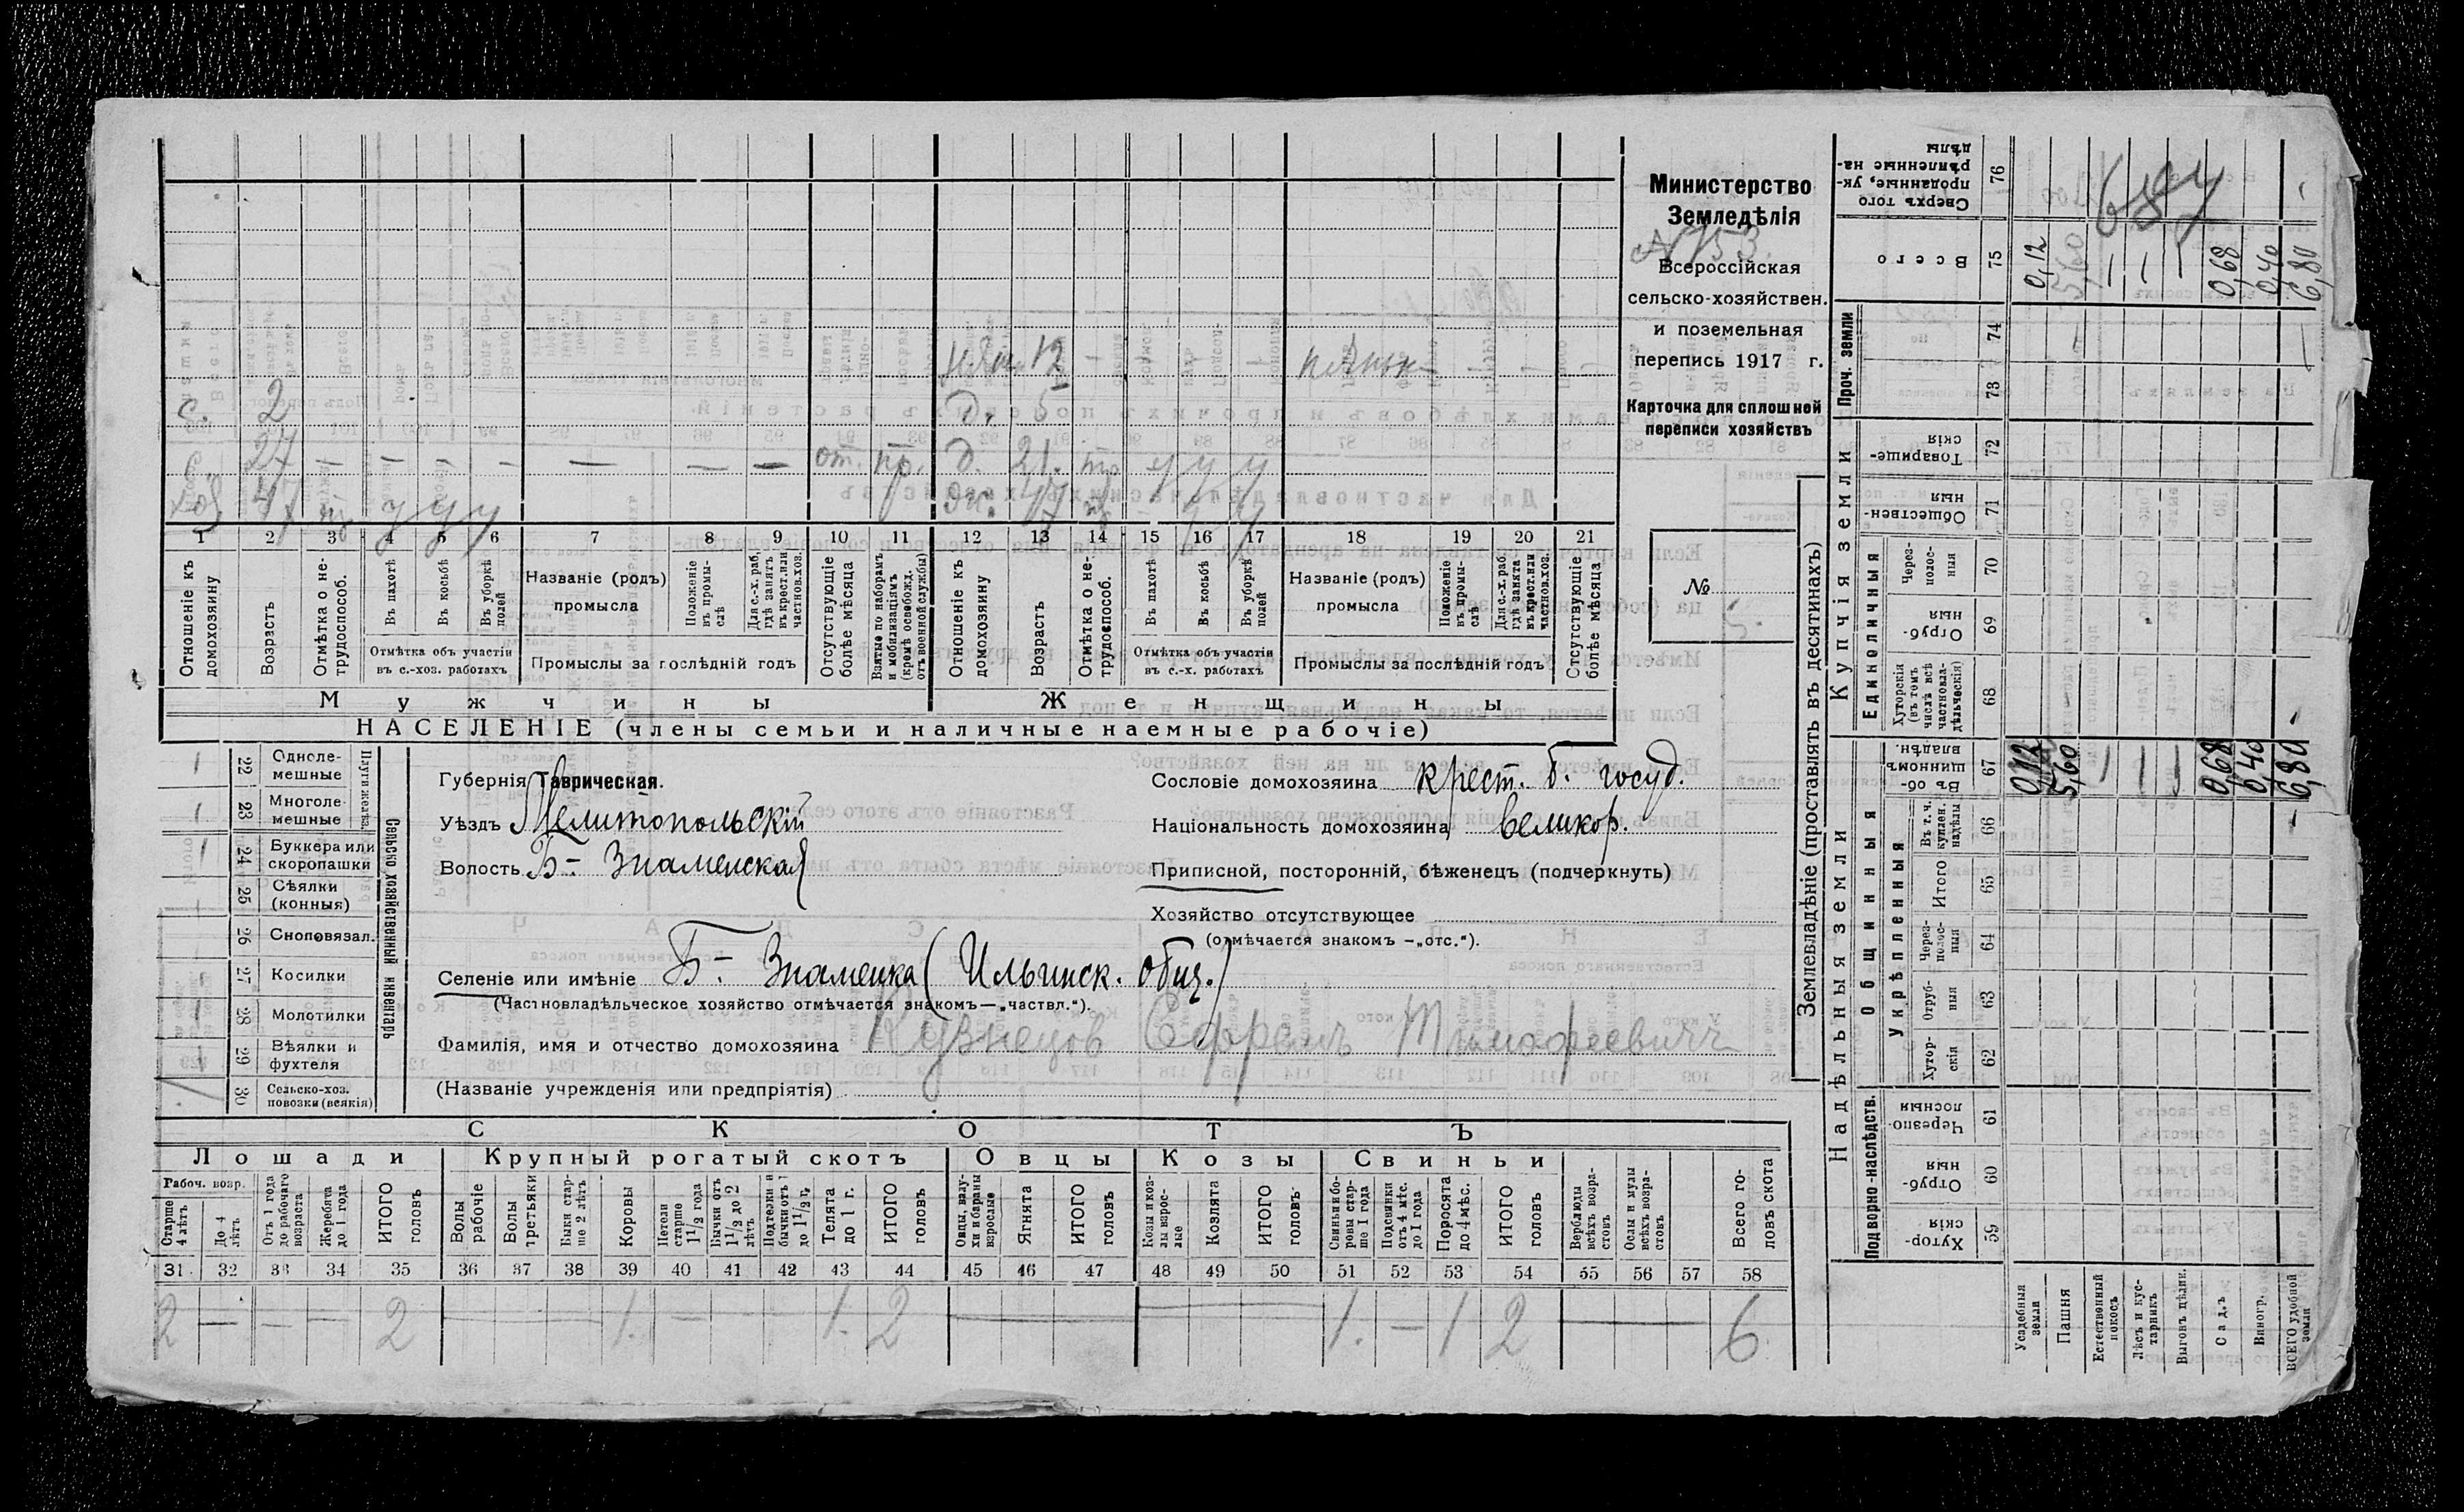 Министерство
Земледѣлія
№ 753.
Всероссійская
сельско-хозяйствен.
и поземельная
перепись 1917 г.
Карточка для сплошной
переписи хозяйствъ
№
н. 12 — — — —
с. 2 д. 5
с. 27 — — — — — — — от. пр. д. 21. у у у
хоз. 47 у у у ж. 47 — у у
1 2 3 4 5 6 7 8 9 10 11 12 13 14 15 16 17 18 19 20 21
Отношеніе къ домохозяину
Возрастъ
Отмѣтка о нетрудоспособ.
Въ пахотѣ
Въ косьбѣ
Въ уборкѣ полей
Отмѣтка объ участіи въ с.-хоз. работахъ
Названіе (родъ) промысла
Положеніе въ промыслѣ
Для с.-х. раб. гдѣ занятъ въ крест. или частнов. хоз.
Промыслы за послѣдній годъ
Отсутствующіе болѣе мѣсяца
Взятые по наборамъ и мобилизаціямъ (кромѣ освобожд. отъ военной службы)
Отношеніе къ домохозяину
Возрастъ
Отмѣтка о нетрудоспособ.
Въ пахотѣ
Въ косьбѣ
Въ уборкѣ полей
Отмѣтка объ участіи въ с.-х. работахъ
Названіе (родъ) промысла
Положеніе въ промыслѣ
Для с.-х. раб. гдѣ занята въ крест. или частнов. хоз.
Промыслы за послѣдній годъ
Отсутствующіе болѣе мѣсяца
Мужчины Женщины
НАСЕЛЕНІЕ (члены семьи и наличные наемные рабочіе)
Сельско-хозяйственный инвентарь
Плуги желѣз.
1 22 Однолемешные
1 23 Многолемешные
1 24 Буккера или скоропашки
25 Сѣялки (конныя)
26 Сноповязал.
27 Косилки
28 Молотилки
29 Вѣялки и фухтеля
1 30 Сельско-хоз. повозки (всякія)
Губернія Таврическая.
Уѣздъ Мелитопольскій
Волость Б- Знаменская
Сословіе домохозяина крест. б. госуд.
Національность домохозяина великор.
Приписной, посторонній, бѣженецъ (подчеркнуть)
Хозяйство отсутствующее
(отмѣчается знакомъ —„отс.“).
Селеніе или имѣніе Б- Знаменка (Ильинск. общ.)
(Частновладѣльческое хозяйство отмѣчается знакомъ—„частвл.“).
Фамилія, имя и отчество домохозяина Кузнецов Ефрем Тимофеевич
(Названіе учрежденія или предпріятія)
СКОТЪ
Лошади Крупный рогатый скотъ Овцы Козы Свиньи
Рабоч. возр.
Старше 4 лѣтъ
До 4 лѣтъ
Отъ 1 года до рабочаго возраста
Жеребята до 1 года
ИТОГО головъ
Волы рабочіе
Волы третьяки
Быки старше 2 лѣтъ
Коровы
Нетели старше 1 1/2 года
Бычки отъ 1 1/2 до 2 лѣтъ
Подтелки и бычки отъ 1 до 1 1/2 г.
Телята до 1 г.
ИТОГО головъ
Овцы, валухи и бараны взрослые
Ягнята
ИТОГО головъ
Козы и козлы взрослые
Козлята
ИТОГО головъ
Свиньи и боровы старше 1 года
Подсвинки отъ 4 мѣс. до 1 года
Поросята до 4 мѣс.
ИТОГО головъ
Верблюды всѣхъ возрастовъ
Ослы и мулы всѣхъ возрастовъ
Всего головъ скота
31 32 33 34 35 36 37 38 39 40 41 42 43 44 45 46 47 48 49 50 51 52 53 54 55 56 57 58
2 — — — 2 — 1. — — 1. 2 — — 1. — 1 2 — 6.
Землевладѣніе (проставлять въ десятинахъ)
Купчія земли
Надѣльныя земли
Проч. земли
Единоличныя
Общинныя
Укрѣпленныя
Подворно-наслѣдств.
76 Сверхъ того проданные, укрѣпленные надѣлы
75 Всего
74
73
72 Товарищескія
71 Общественныя
70 Черезполосныя
69 Отрубныя
68 Хуторскія (въ томъ числѣ всѣ частновладѣльческія)
67 Въ общинномъ владѣн.
66 Въ т. ч. куплен. надѣлы
65 Итого
64 Черезполосныя
63 Отрубныя
62 Хуторскія
61 Черезполосныя
60 Отрубныя
59 Хуторскія
0,12 5,60 | | | 0,68 0,40 6,80
0,12 5,60 | | | 0,68 0,40 6,80
Усадебныя земли
Пашня
Естественный покосъ
Лѣсъ и кустарникъ
Выгонъ цѣлин.
Садъ
Виногр.
ВСЕГО удобной земли